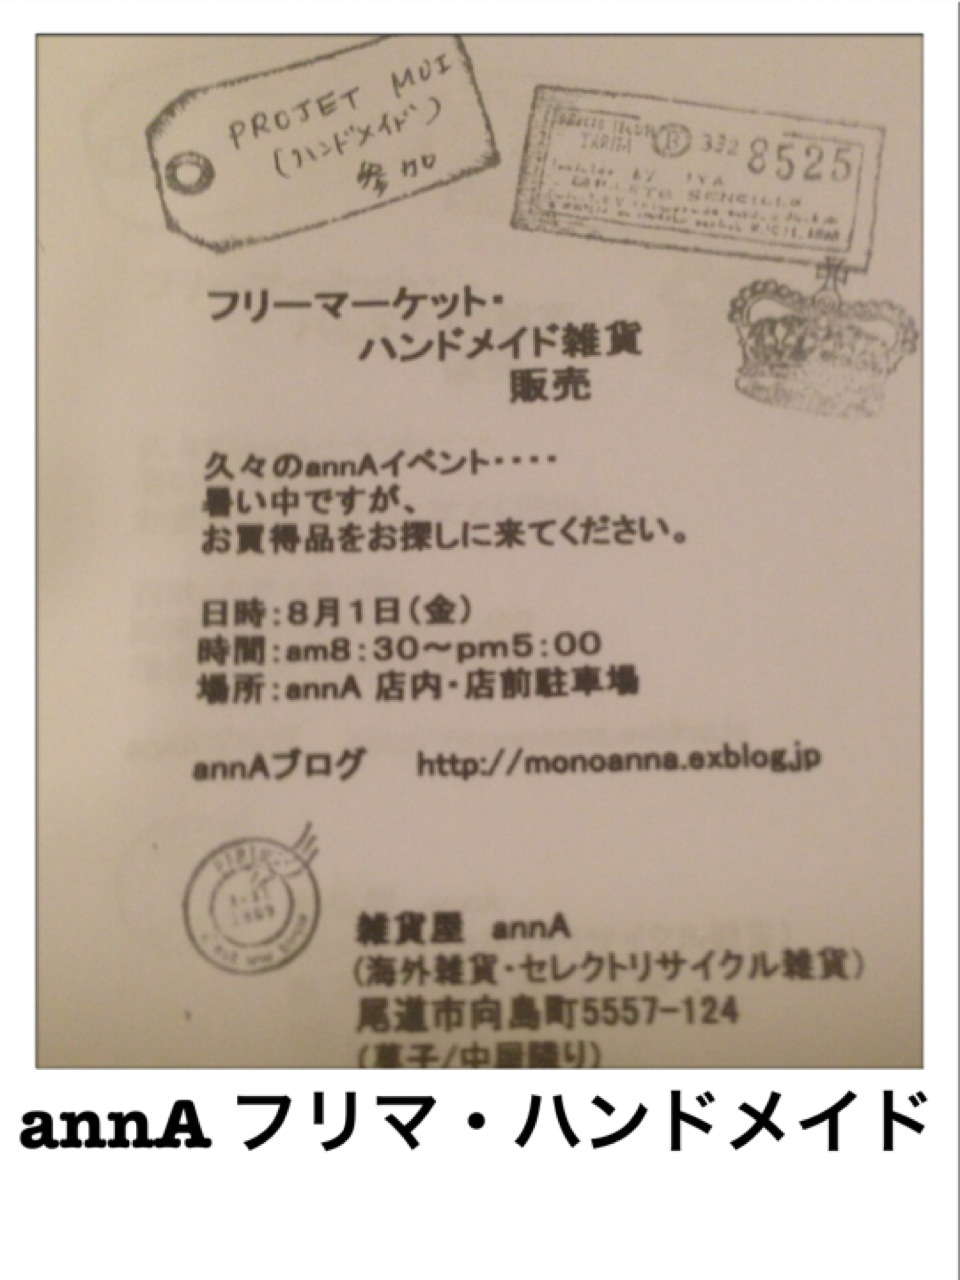 PROJET MUI
(ハンドメイド)
参加
B 332 8525
フリーマーケット・
ハンドメイド雑貨
販売
久々のannAイベント・・・・
暑い中ですが、
お買得品をお探しに来てください。
日時:8月1日(金)
時間:am8:30〜pm5:00
場所:annA 店内・店前駐車場
annAブログ http://monoanna.exblog.jp
雑貨屋 annA
(海外雑貨・セレクトリサイクル雑貨)
尾道市向島町5557-124
(菓子/中屋隣り)
annA フリマ・ハンドメイド